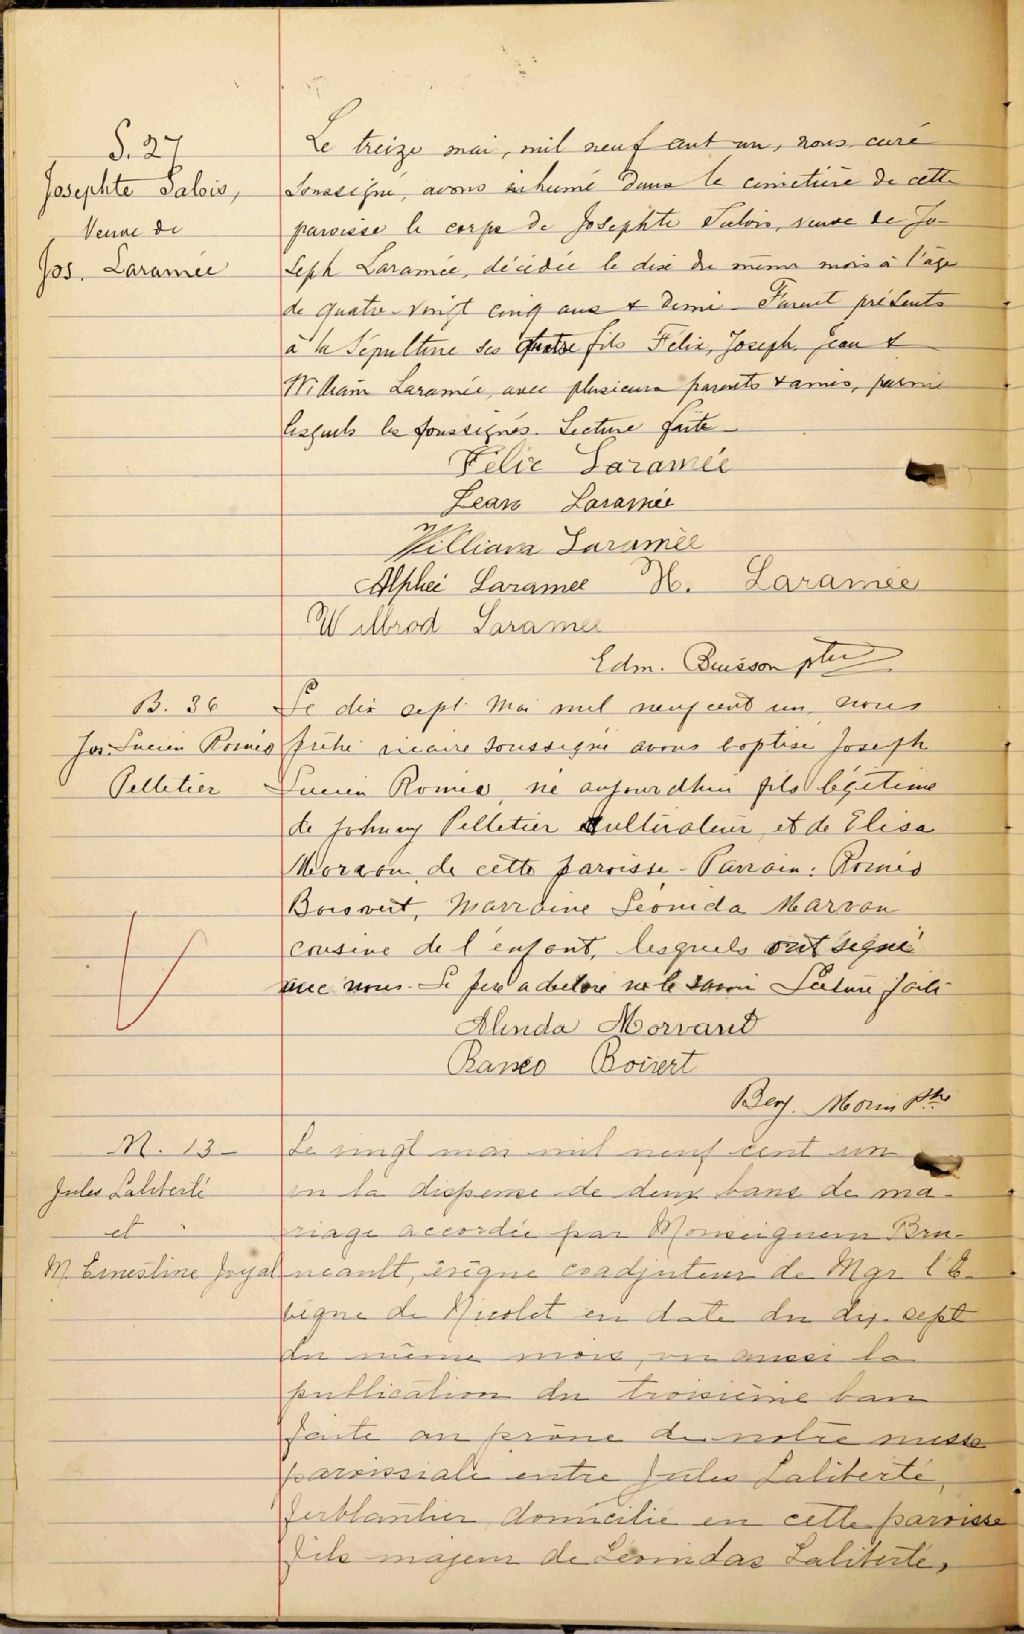 S. 27
Josephte Salois,
Veuve de
Jos. Laramée
Le treize mai, mil neuf cent un, nous curé
soussigné, avons inhumé dans le cimetière de cette
paroisse le corps de Josephte Salois, veuve de Jo-
seph Laramée, décédée le dix du même mois à l'âge
de quatre-vingt cinq ans & demi - Furent présents
à la sépulture ses quatre fils Félix, Joseph, Jean &
William Laramée, avec plusieurs parents & amis, parmi
lesquels les soussignés. Lecture faite -
Félix Laramée
Jean Laramée
William Laramée
Alphée Laramee H. Laramée
Wilbrod Laramee
Edm. Buisson ptre
B. 36
Jos. Lucien Roméo
Pelletier
Le dix sept mai mil neuf cent un, nous
prêtre vicaire soussigné avons baptisé Joseph
Lucien Roméo, né aujourdhui fils légitime
de Johnny Pelletier cultivateur et de Elisa
de cette paroisse - Parrain: Roméo
Boisvert, Marraine Léonida Marvan
cousine de l'enfant, lesquels ont signé
avec nous. Le père a déclaré ne le savoir Lecture faite
Alinda Morvant
Roméo Boisvert
Benj. Morin Ptre
M. 13 -
Jules Laliberté
et
M. Ernestine Joyal
Le vingt mai mil neuf cent un
vu la dispense de deux bans de ma-
riage accordée par Monseigneur Bru-
neault, évêque coadjuteur de Mgr l'E-
vêque de Nicolet en date du dix-sept
du même mois, vu aussi la
publication du troisième ban
faite au prône de notre messe
paroissiale entre Jules Laliberté,
ferblantier domicilié en cette paroisse
fils majeur de Léonidas Laliberté,